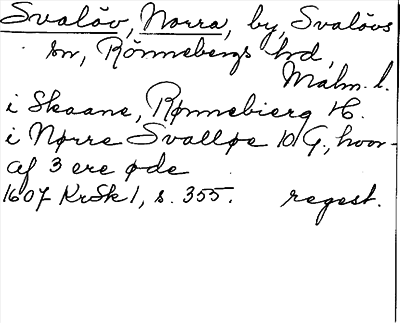 Svalöv, Norra, by, Svalövs
sn, Rönnebergs hd,
Malm. l.
i Skaane, Rønnebierg H.
i Nørre Svalløse 10 G., hvor-
af 3 ere øde
1607 KrSk 1, s. 355. regest.